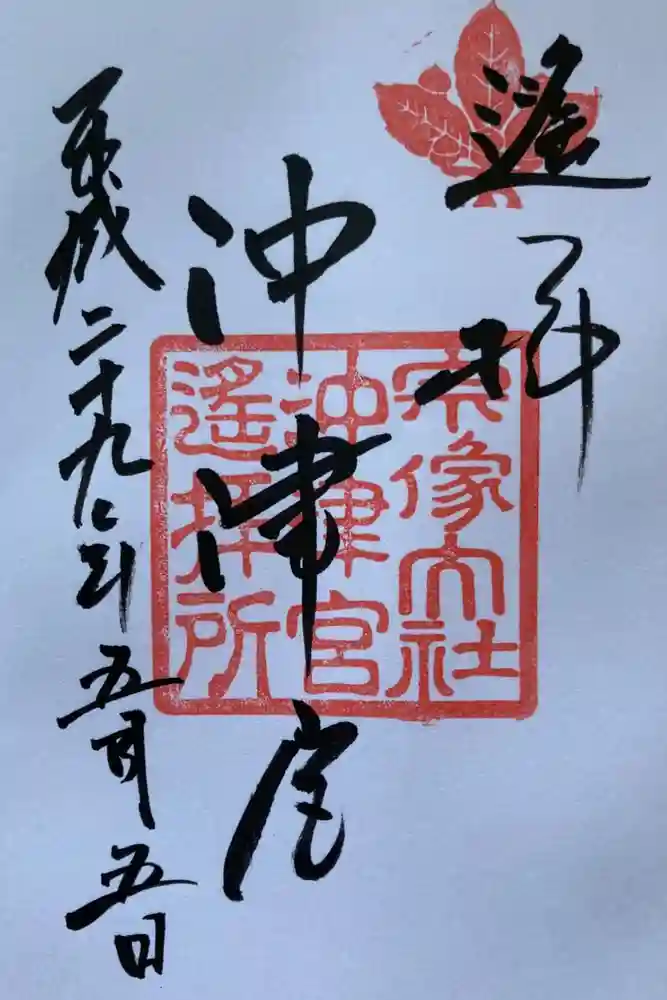 遥拝
沖津宮
平成二十九年五月五日
宗像大社
沖津宮
遥拝所